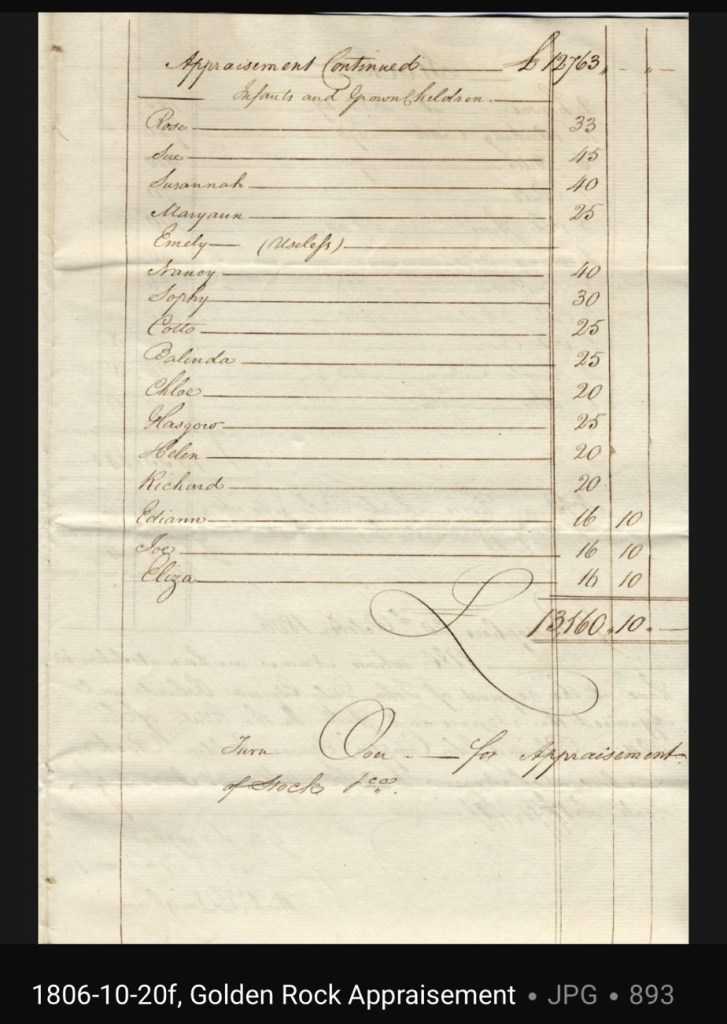 Appraisement Continued £ 12763 " - " -
Infants and Grown Children
Rose 33
Sue 45
Susannah 40
Maryann 25
Emely (Useless)
Nancy 40
Sophy 30
Cotto 25
Balinda 25
Chloe 20
Glasgow 25
Helen 20
Richard 20
Ediann 16 10
Joe 16 10
Eliza 16 10
£ 13,160 " 10 " -
Turn Over for Appraisement
of Stock &ca.
1806-10-20f, Golden Rock Appraisement • JPG • 893